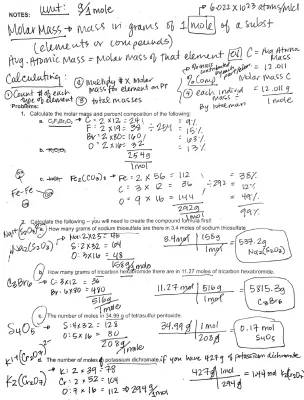 NOTES: unit: g/1 mole
6.022 x 1023 atoms/mcl
Molar Mass → mass in grams of 1 mole of a subst
(elements or compounds)
Avg. Atomic Mass = Molar mass of that element
C = Avg Atomic
Mass = 12.011
Calculating:
Molar mass C
= 12.011 g
1 mole
① Count # of each
type of element
② multiply # x Molar
mass for element on PT
③ total masses
% Comp
④ each indiv'd
mass ÷
by total mass
Problems:
1. Calculate the molar mass and percent composition of the following:
a.
C = 2 x 12 = 24
F: 2 x 19 = 38
÷ 254
Br: 2 x 80 = 160
O: 2 x 16 = 32
254g
1mol
9%
15%
63%
13%
b.
c.
Fe2(CO3)3
Fe = 2 x 56 = 112
C = 3 x 12 = 36
÷ 292
O = 9 x 16 = 144
292g
1mol
38%
12%
49%
99%
Fe-Fe
2. Calculate the following – you will need to create the compound formula first!
a. How many grams of sodium thiosulfate are there in 3.4 moles of sodium thiosulfate
Na2(S2O3)
Na: 2 x 23 = 46
S: 2 x 32 = 64
O: 3 x 16 = 48
158g/1mole
3.4mol | 158g
1mol
= 537.2g
Na2(S2O3)
b. How many grams of tricarbon hexabromide are there in 11.27 moles of tricarbon hexabromide.
C: 3 x 12 = 36
Br: 6 x 80 = 480
516g
1mole
11.27 mol | 516g
1mol
= 5815.3g
C3Br6
C3Br6
c. The number of moles in 34.99 g of tetrasulfur pentoxide.
S4O5
S: 4 x 32 = 128
O: 5 x 16 = 80
208g
1mole
34.99g | 1mol
208g
= 0.17 mol
S4O5
d. The number of moles of potassium dichromate, if you have 427g of potassium dichromate
K1+(Cr2O7)2-
K2(Cr2O7)
K: 2 x 39 = 78
Cr: 2 x 52 = 104
O: 7 x 16 = 112 → 294g/1mol
427g | 1mol
294g
= 1.44 mol K2Cr2O7